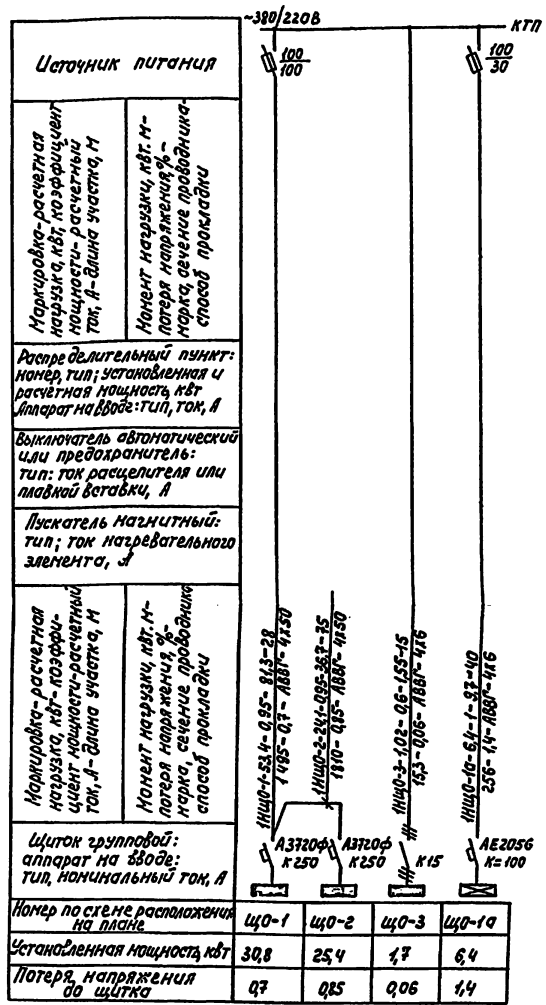 ~380/220В
КТП
Источник питания
100
100
100
30
Маркировка-расчетная
нагрузка, квт, коэффициент
мощности-расчетный
ток, А-длина участка, м
Момент нагрузки, квт. м-
потеря напряжения, %-
марка, сечение проводника-
способ прокладки
Распределительный пункт:
номер, тип; установленная и
расчетная мощность, квт
Аппарат на вводе: тип, ток, А
Выключатель автоматический
или предохранитель:
тип: ток расцепителя или
плавкой вставки, А
Пускатель магнитный:
тип; ток нагревательного
элемента, А
Маркировка-расчетная
нагрузка, квт-коэффи-
циент мощности-расчетный
ток, А-длина участка, м
Момент нагрузки, квт. м-
потеря напряжения, %-
марка, сечение проводника
способ прокладки
1НЩО-1-53,4-0,95-81,3-28
1495-0,7-АВВГ-4x50
1НЩО-2-24,1-0,95-36,7-75
1810-0,85-АВВГ-4x50
1НЩО-3-1,02-0,6-1,55-15
15,3-0,06-АВВГ-4x6
1НЩО-1а-6,4-1-9,7-40
256-1,4-АВВГ-4x6
Щиток групповой:
аппарат на вводе:
тип, номинальный ток, А
А3720ф
К250
А3720ф
К250
К15
АЕ2056
К=100
Номер по схеме расположения
на плане
ЩО-1
ЩО-2
ЩО-3
ЩО-1а
Установленная мощность, квт
30,8
25,4
1,7
6,4
Потеря напряжения
до щитка
0,7
0,85
0,06
1,4